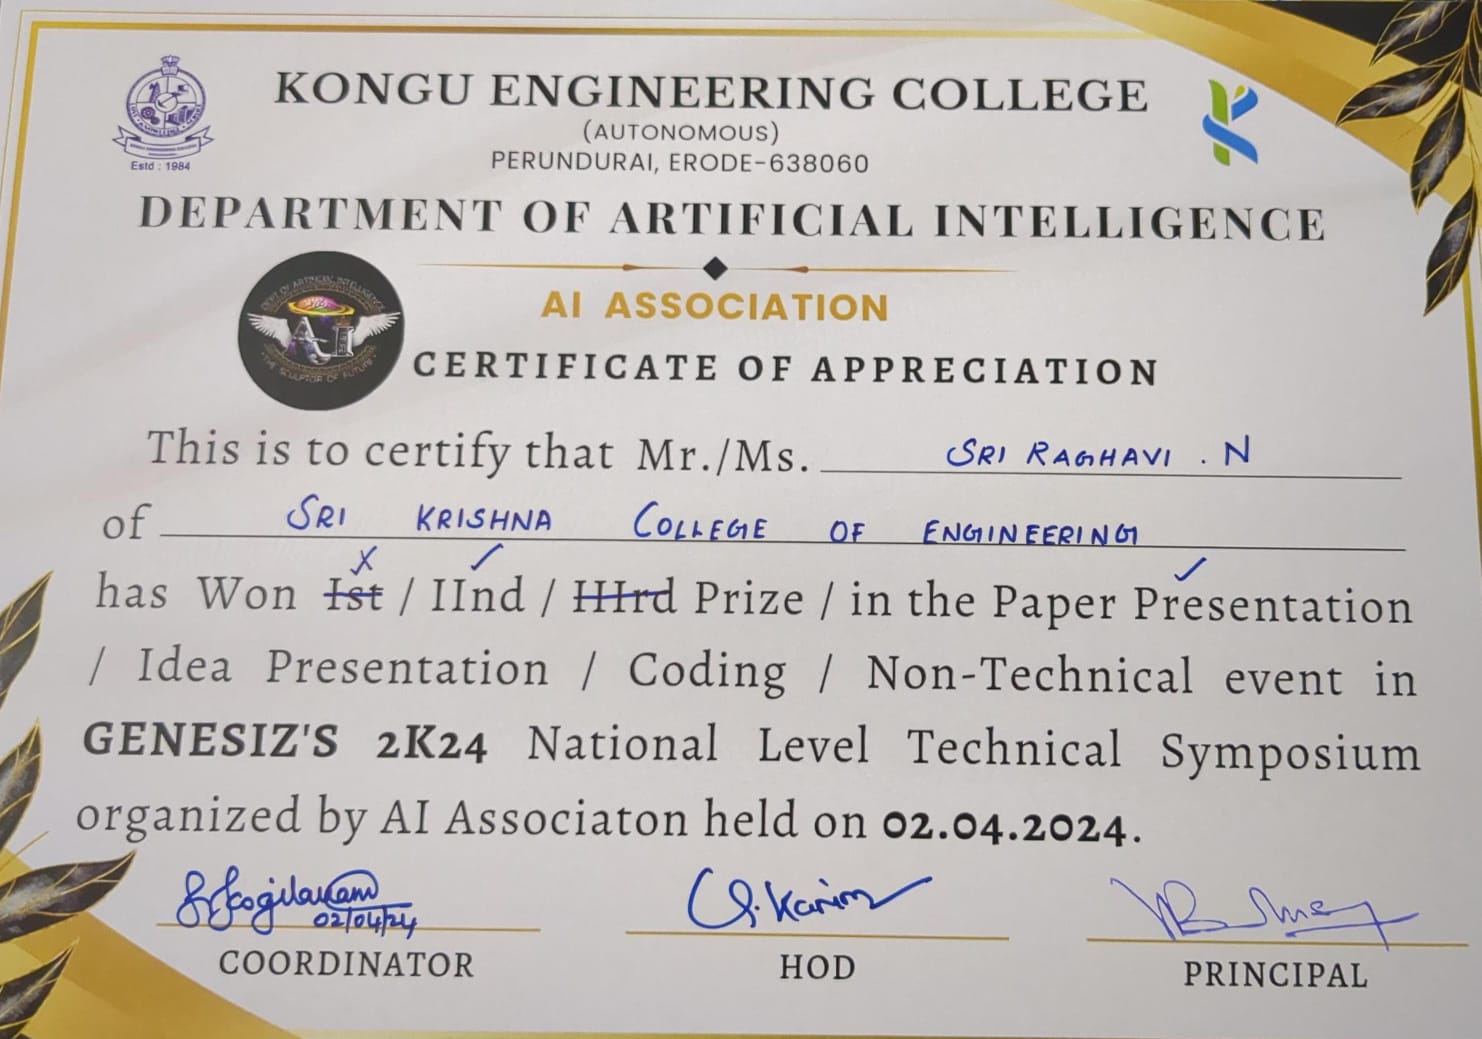 KONGU ENGINEERING COLLEGE
(AUTONOMOUS)
PERUNDURAI, ERODE-638060
Estd : 1984
DEPARTMENT OF ARTIFICIAL INTELLIGENCE
AI ASSOCIATION
DEPT OF ARTIFICIAL INTELLIGENCE
AI
THE SCULPTOR OF FUTURE
CERTIFICATE OF APPRECIATION
This is to certify that Mr./Ms. SRI RAGHAVI . N
of SRI KRISHNA COLLEGE OF ENGINEERING
has Won Ist / IInd / IIIrd Prize / in the Paper Presentation
/ Idea Presentation / Coding / Non-Technical event in
GENESIZ'S 2K24 National Level Technical Symposium
organized by AI Associaton held on 02.04.2024.
02/04/24
COORDINATOR HOD PRINCIPAL